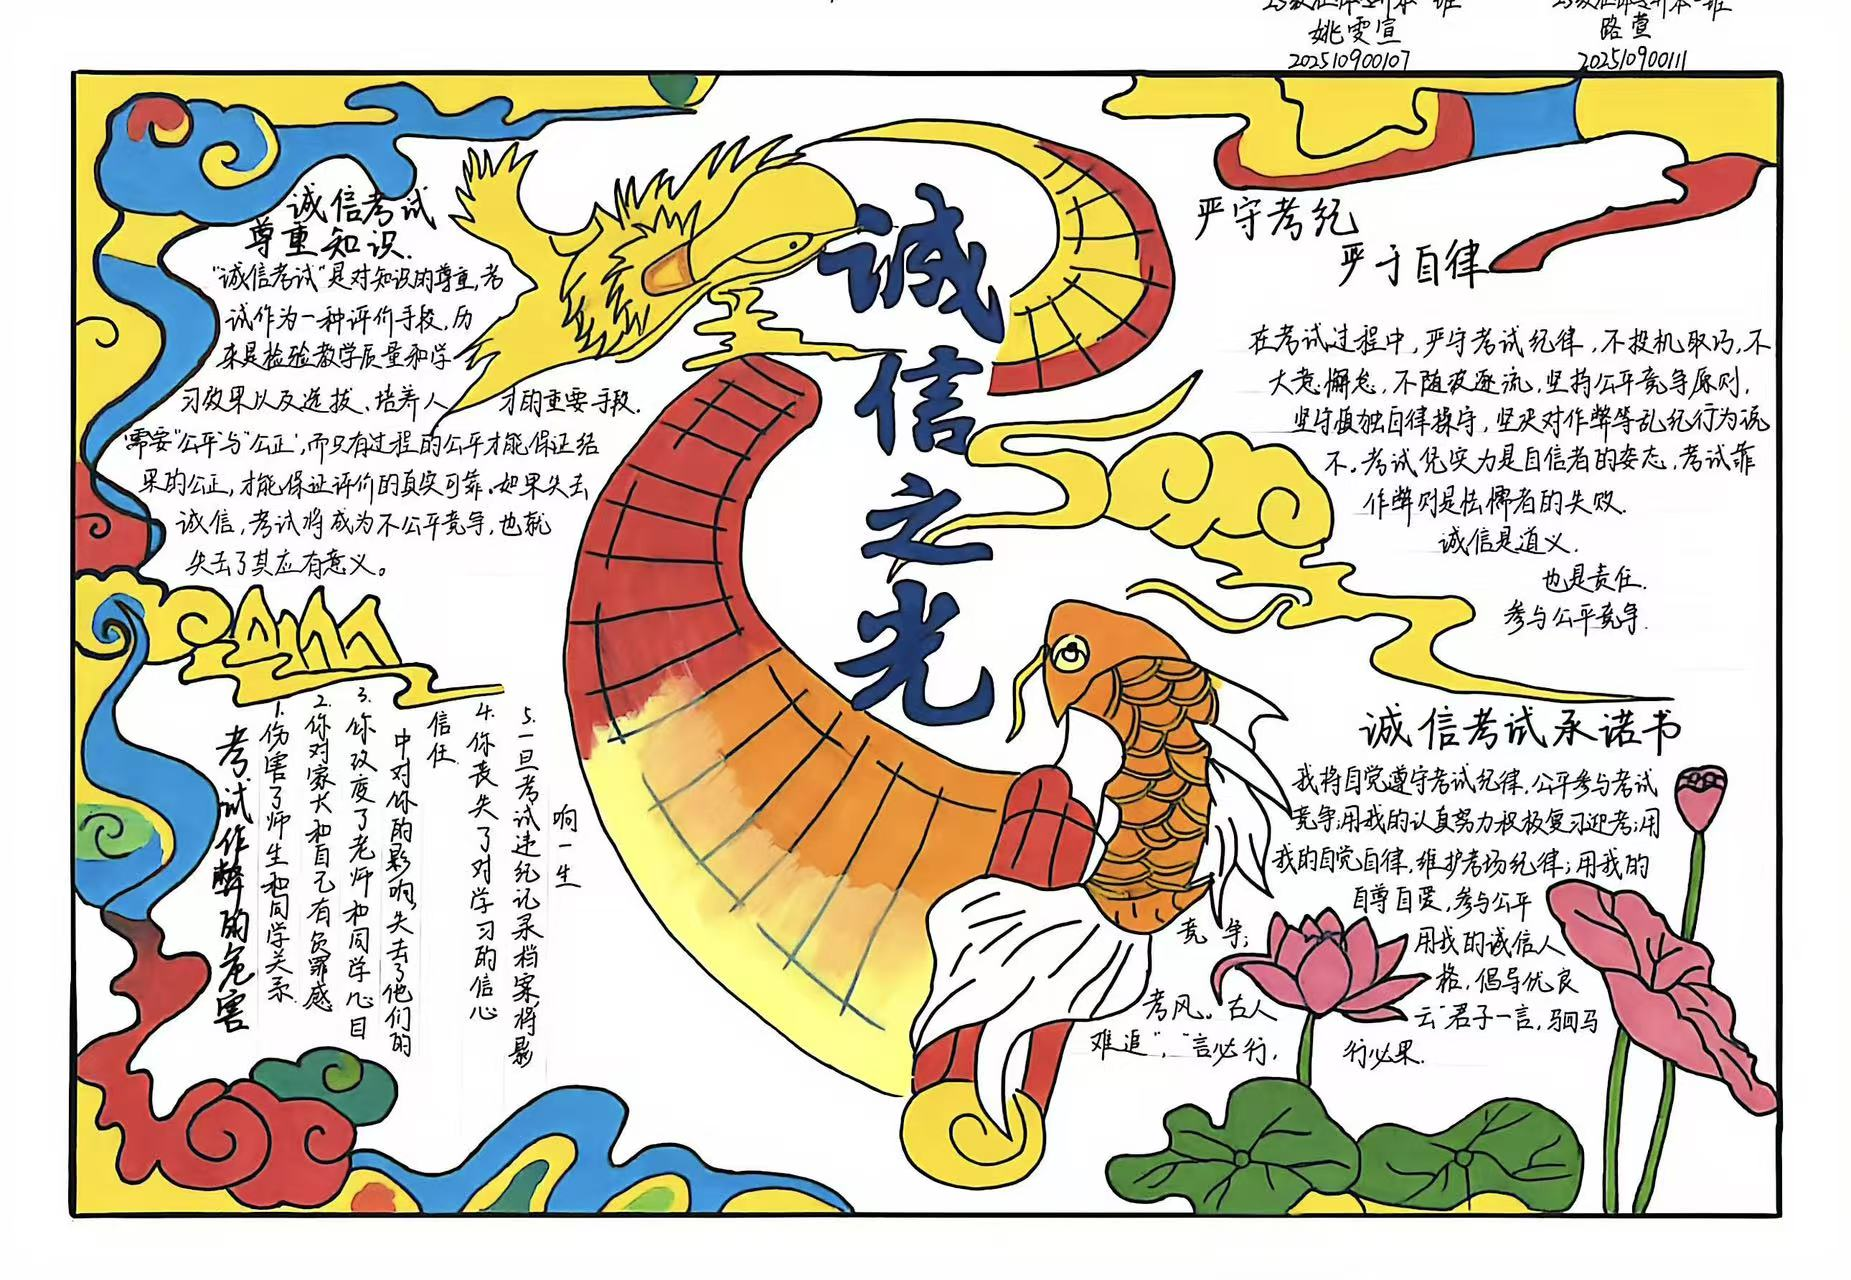 姚雯宣
202510900107
路萱
202510900111
诚信之光
诚信考试
尊重知识.
"诚信考试"是对知识的尊重,考
试作为一种评价手段,历
来是检验教学质量和学
习效果以及选拔、培养人 才的重要手段.
需要"公平"与"公正",而只有过程的公平才能保证结
果的公正,才能保证评价的真实可靠。如果失去
诚信,考试将成为不公平竞争,也就
失去了其应有意义。
严守考纪
严于自律
在考试过程中,严守考试纪律,不投机取巧,不
大意懈怠,不随波逐流,坚持公平竞争原则,
坚守慎独自律操守,坚决对作弊等乱纪行为说
不。考试凭实力是自信者的姿态,考试靠
作弊则是怯懦者的失败.
诚信是道义.
也是责任.
参与公平竞争.
考试作弊的危害
1.伤害了师生和同学关系
2.你对家人和自己有负罪感
3.你改变了老师和同学心目
中对你的影响,失去了他们的
信任.
4.你丧失了对学习的信心
5.一旦考试违纪记录档案将影
响一生
诚信考试承诺书
我将自觉遵守考试纪律,公平参与考试
竞争;用我的认真努力积极复习迎考;用
我的自觉自律,维护考场纪律;用我的
自尊自爱,参与公平
竞争; 用我的诚信人
格,倡导优良
考风。古人 云"君子一言,驷马
难追","言必行, 行必果.